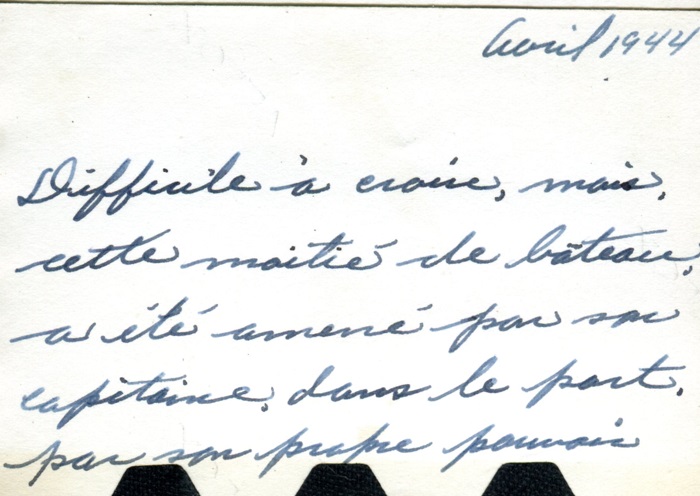 Avril 1944
Difficile à croire, mais,
cette moitié de bâteau,
a été amené par son
capitaine, dans le port,
par son propre pouvoir